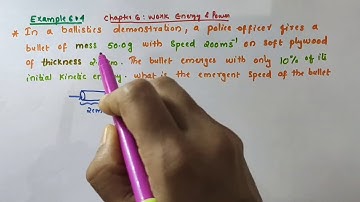 Example 6.4 Chapter 6: Work Energy & Power
* In a ballistics demonstration, a police officer fires a
bullet of mass 50.0g with speed 200ms⁻¹ on soft plywood
of thickness 2. The bullet emerges with only 10% of its
initial kinetic. what is the emergent speed of the bullet
2cm